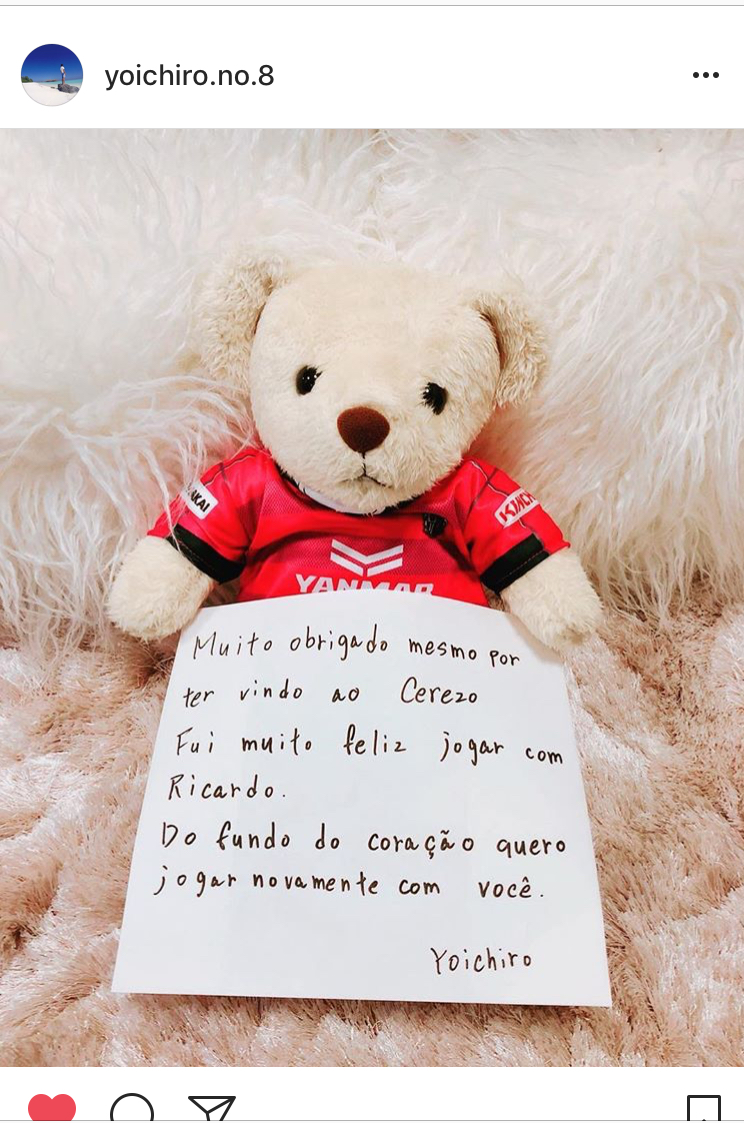 yoichiro.no.8
YANMAR
Muito obrigado mesmo por
ter vindo ao Cerezo
Fui muito feliz jogar com
Ricardo.
Do fundo do coração quero
jogar novamente com você.
Yoichiro